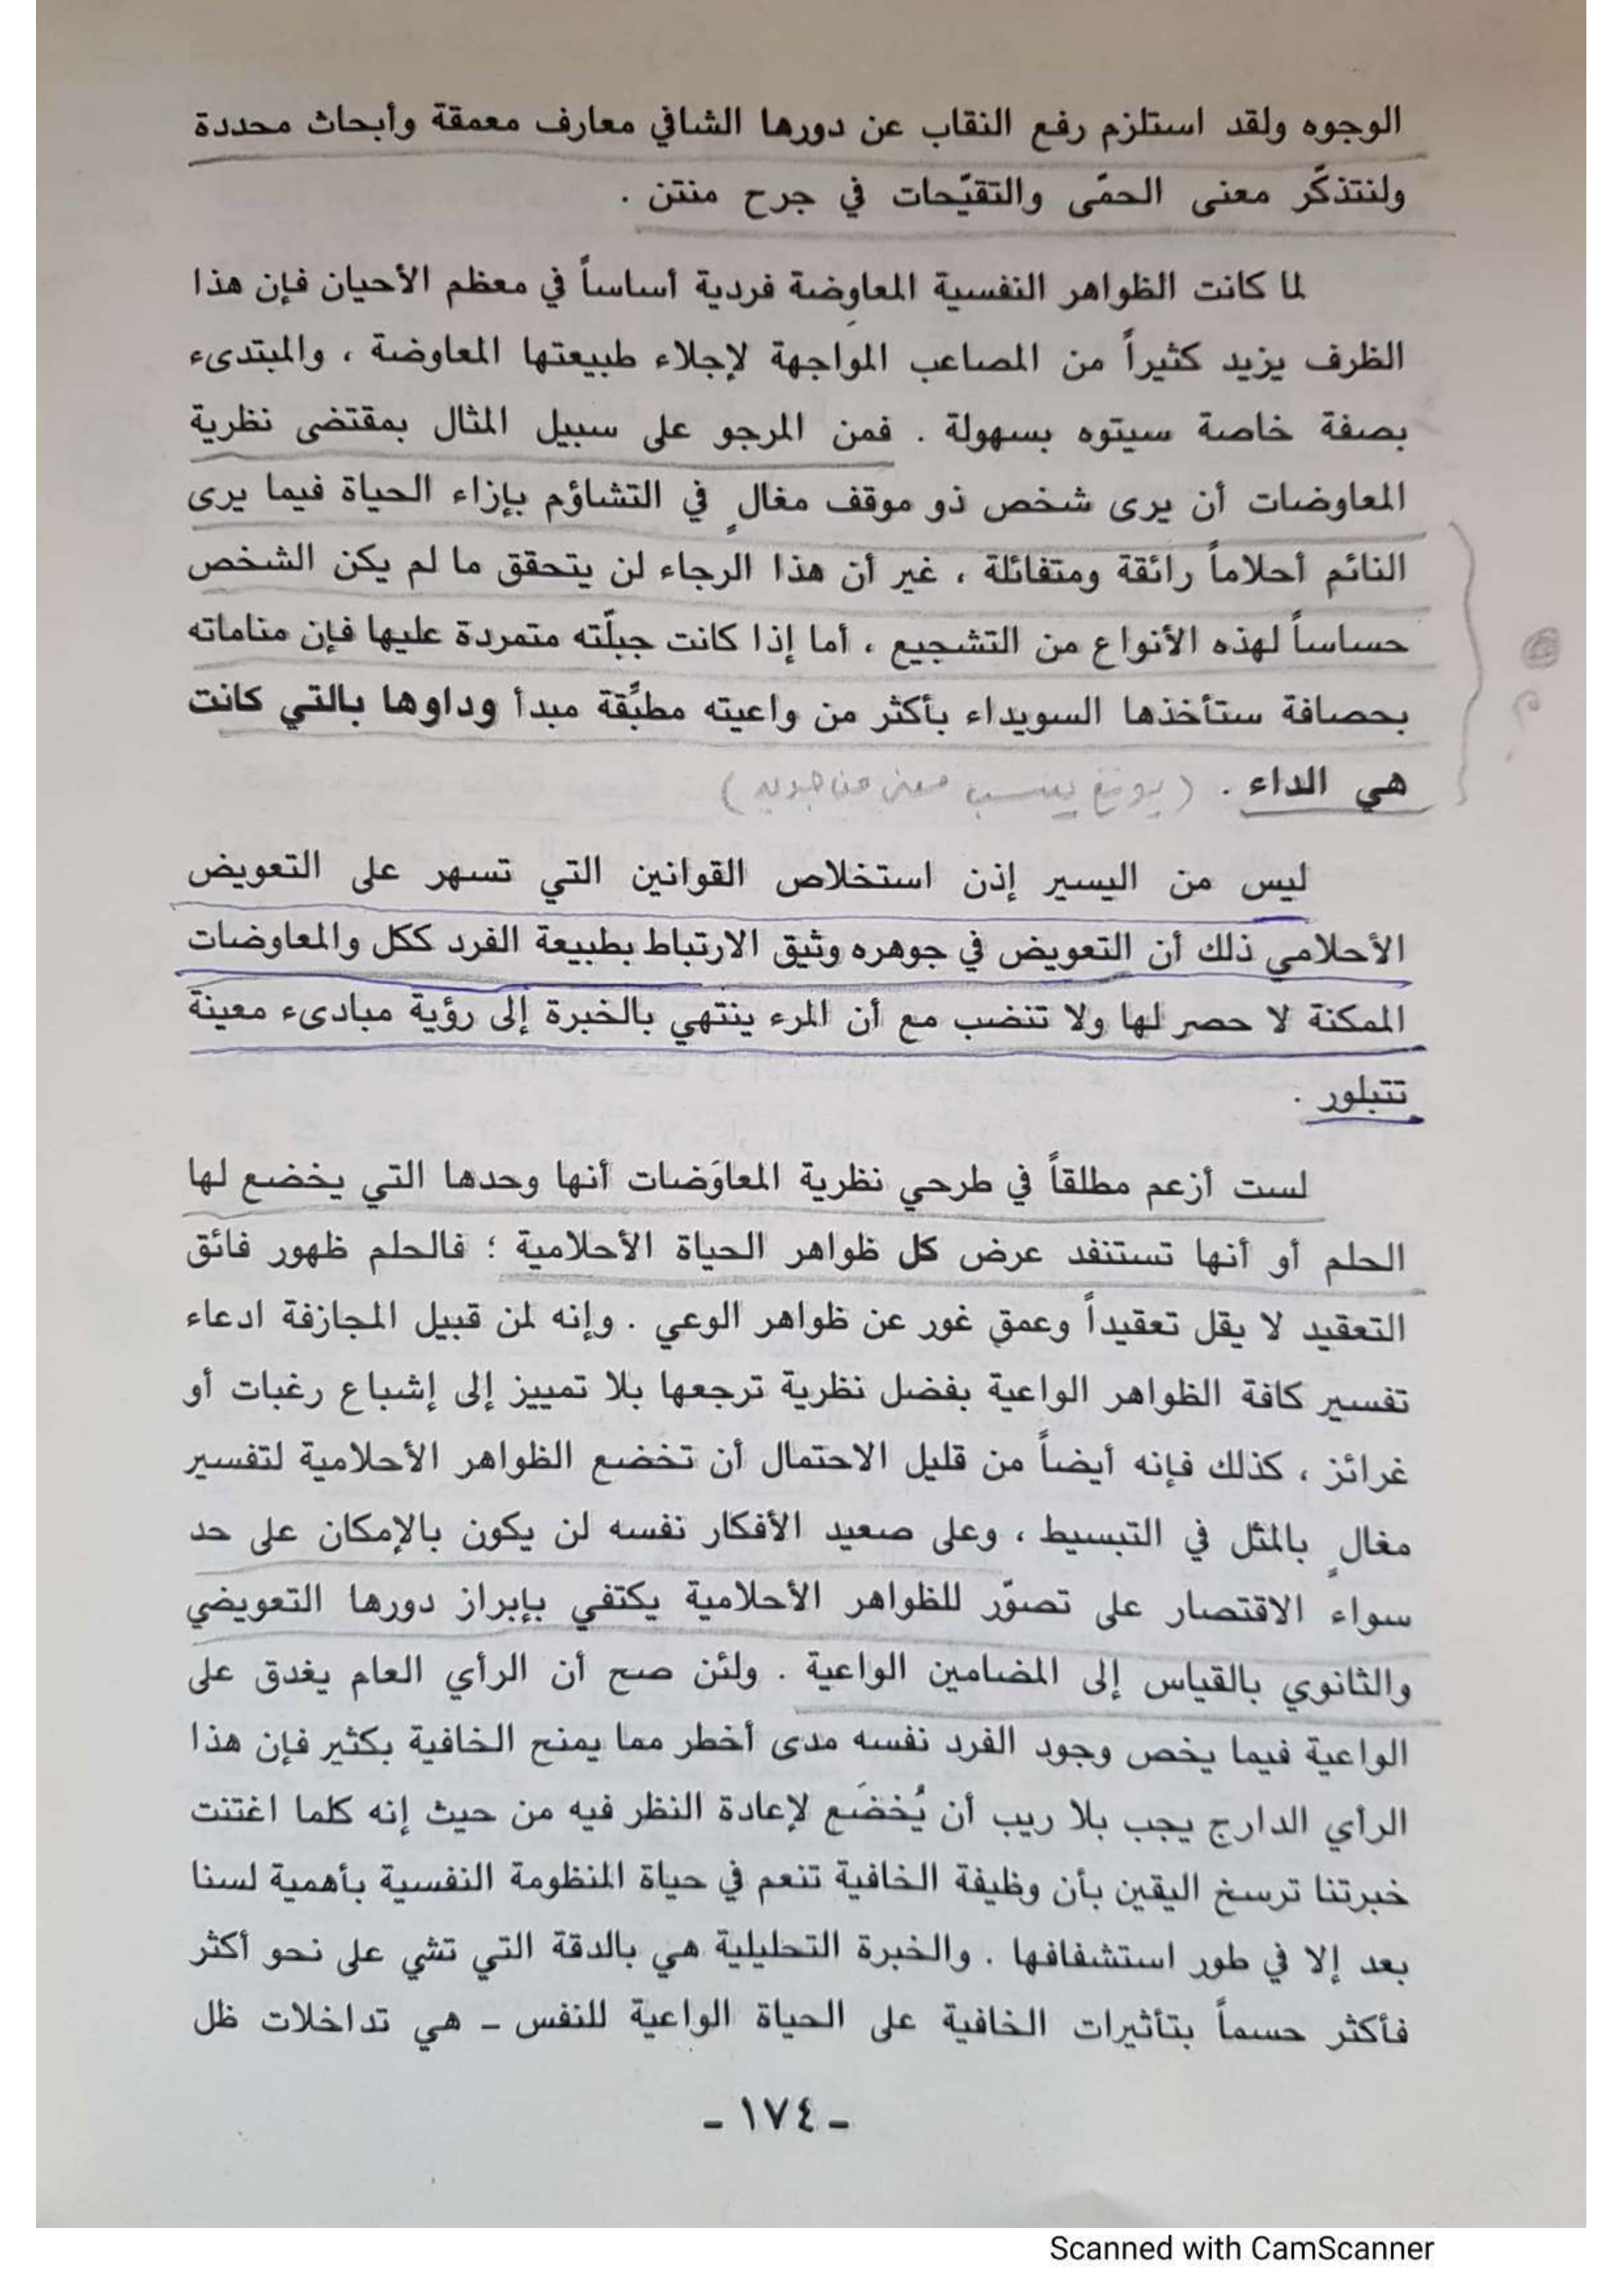 الوجوه ولقد استلزم رفع النقاب عن دورها الشافي معارف معمقة وأبحاث محددة
ولنتذكّر معنى الحمّى والتقيّحات في جرح منتن .
لما كانت الظواهر النفسية المعاوِضة فردية أساساً في معظم الأحيان فإن هذا
الظرف يزيد كثيراً من المصاعب المواجهة لإجلاء طبيعتها المعاوضة ، والمبتدىء
بصفة خاصة سيتوه بسهولة . فمن المرجو على سبيل المثال بمقتضى نظرية
المعاوضات أن يرى شخص ذو موقف مغالٍ في التشاؤم بإزاء الحياة فيما يرى
النائم أحلاماً رائقة ومتفائلة ، غير أن هذا الرجاء لن يتحقق ما لم يكن الشخص
حساساً لهذه الأنواع من التشجيع ، أما إذا كانت جبلّته متمردة عليها فإن مناماته
بحصافة ستأخذها السويداء بأكثر من واعيته مطبِّقة مبدأ وداوها بالتي كانت
هي الداء . (يونغ ينسب معنى من جديد)
ليس من اليسير إذن استخلاص القوانين التي تسهر على التعويض
الأحلامي ذلك أن التعويض في جوهره وثيق الارتباط بطبيعة الفرد ككل والمعاوضات
الممكنة لا حصر لها ولا تنضب مع أن المرء ينتهي بالخبرة إلى رؤية مبادىء معينة
تتبلور .
لست أزعم مطلقاً في طرحي نظرية المعاوَضات أنها وحدها التي يخضع لها
الحلم أو أنها تستنفد عرض كل ظواهر الحياة الأحلامية ؛ فالحلم ظهور فائق
التعقيد لا يقل تعقيداً وعمق غور عن ظواهر الوعي . وإنه لمن قبيل المجازفة ادعاء
تفسير كافة الظواهر الواعية بفضل نظرية ترجعها بلا تمييز إلى إشباع رغبات أو
غرائز ، كذلك فإنه أيضاً من قليل الاحتمال أن تخضع الظواهر الأحلامية لتفسير
مغالٍ بالمثل في التبسيط ، وعلى صعيد الأفكار نفسه لن يكون بالإمكان على حد
سواء الاقتصار على تصوّر للظواهر الأحلامية يكتفي بإبراز دورها التعويضي
والثانوي بالقياس إلى المضامين الواعية . ولئن صح أن الرأي العام يغدق على
الواعية فيما يخص وجود الفرد نفسه مدى أخطر مما يمنح الخافية بكثير فإن هذا
الرأي الدارج يجب بلا ريب أن يُخضَع لإعادة النظر فيه من حيث إنه كلما اغتنت
خبرتنا ترسخ اليقين بأن وظيفة الخافية تنعم في حياة المنظومة النفسية بأهمية لسنا
بعد إلا في طور استشفافها . والخبرة التحليلية هي بالدقة التي تشي على نحو أكثر
فأكثر حسماً بتأثيرات الخافية على الحياة الواعية للنفس ـ هي تداخلات ظل
ـ ١٧٤ ـ
Scanned with CamScanner